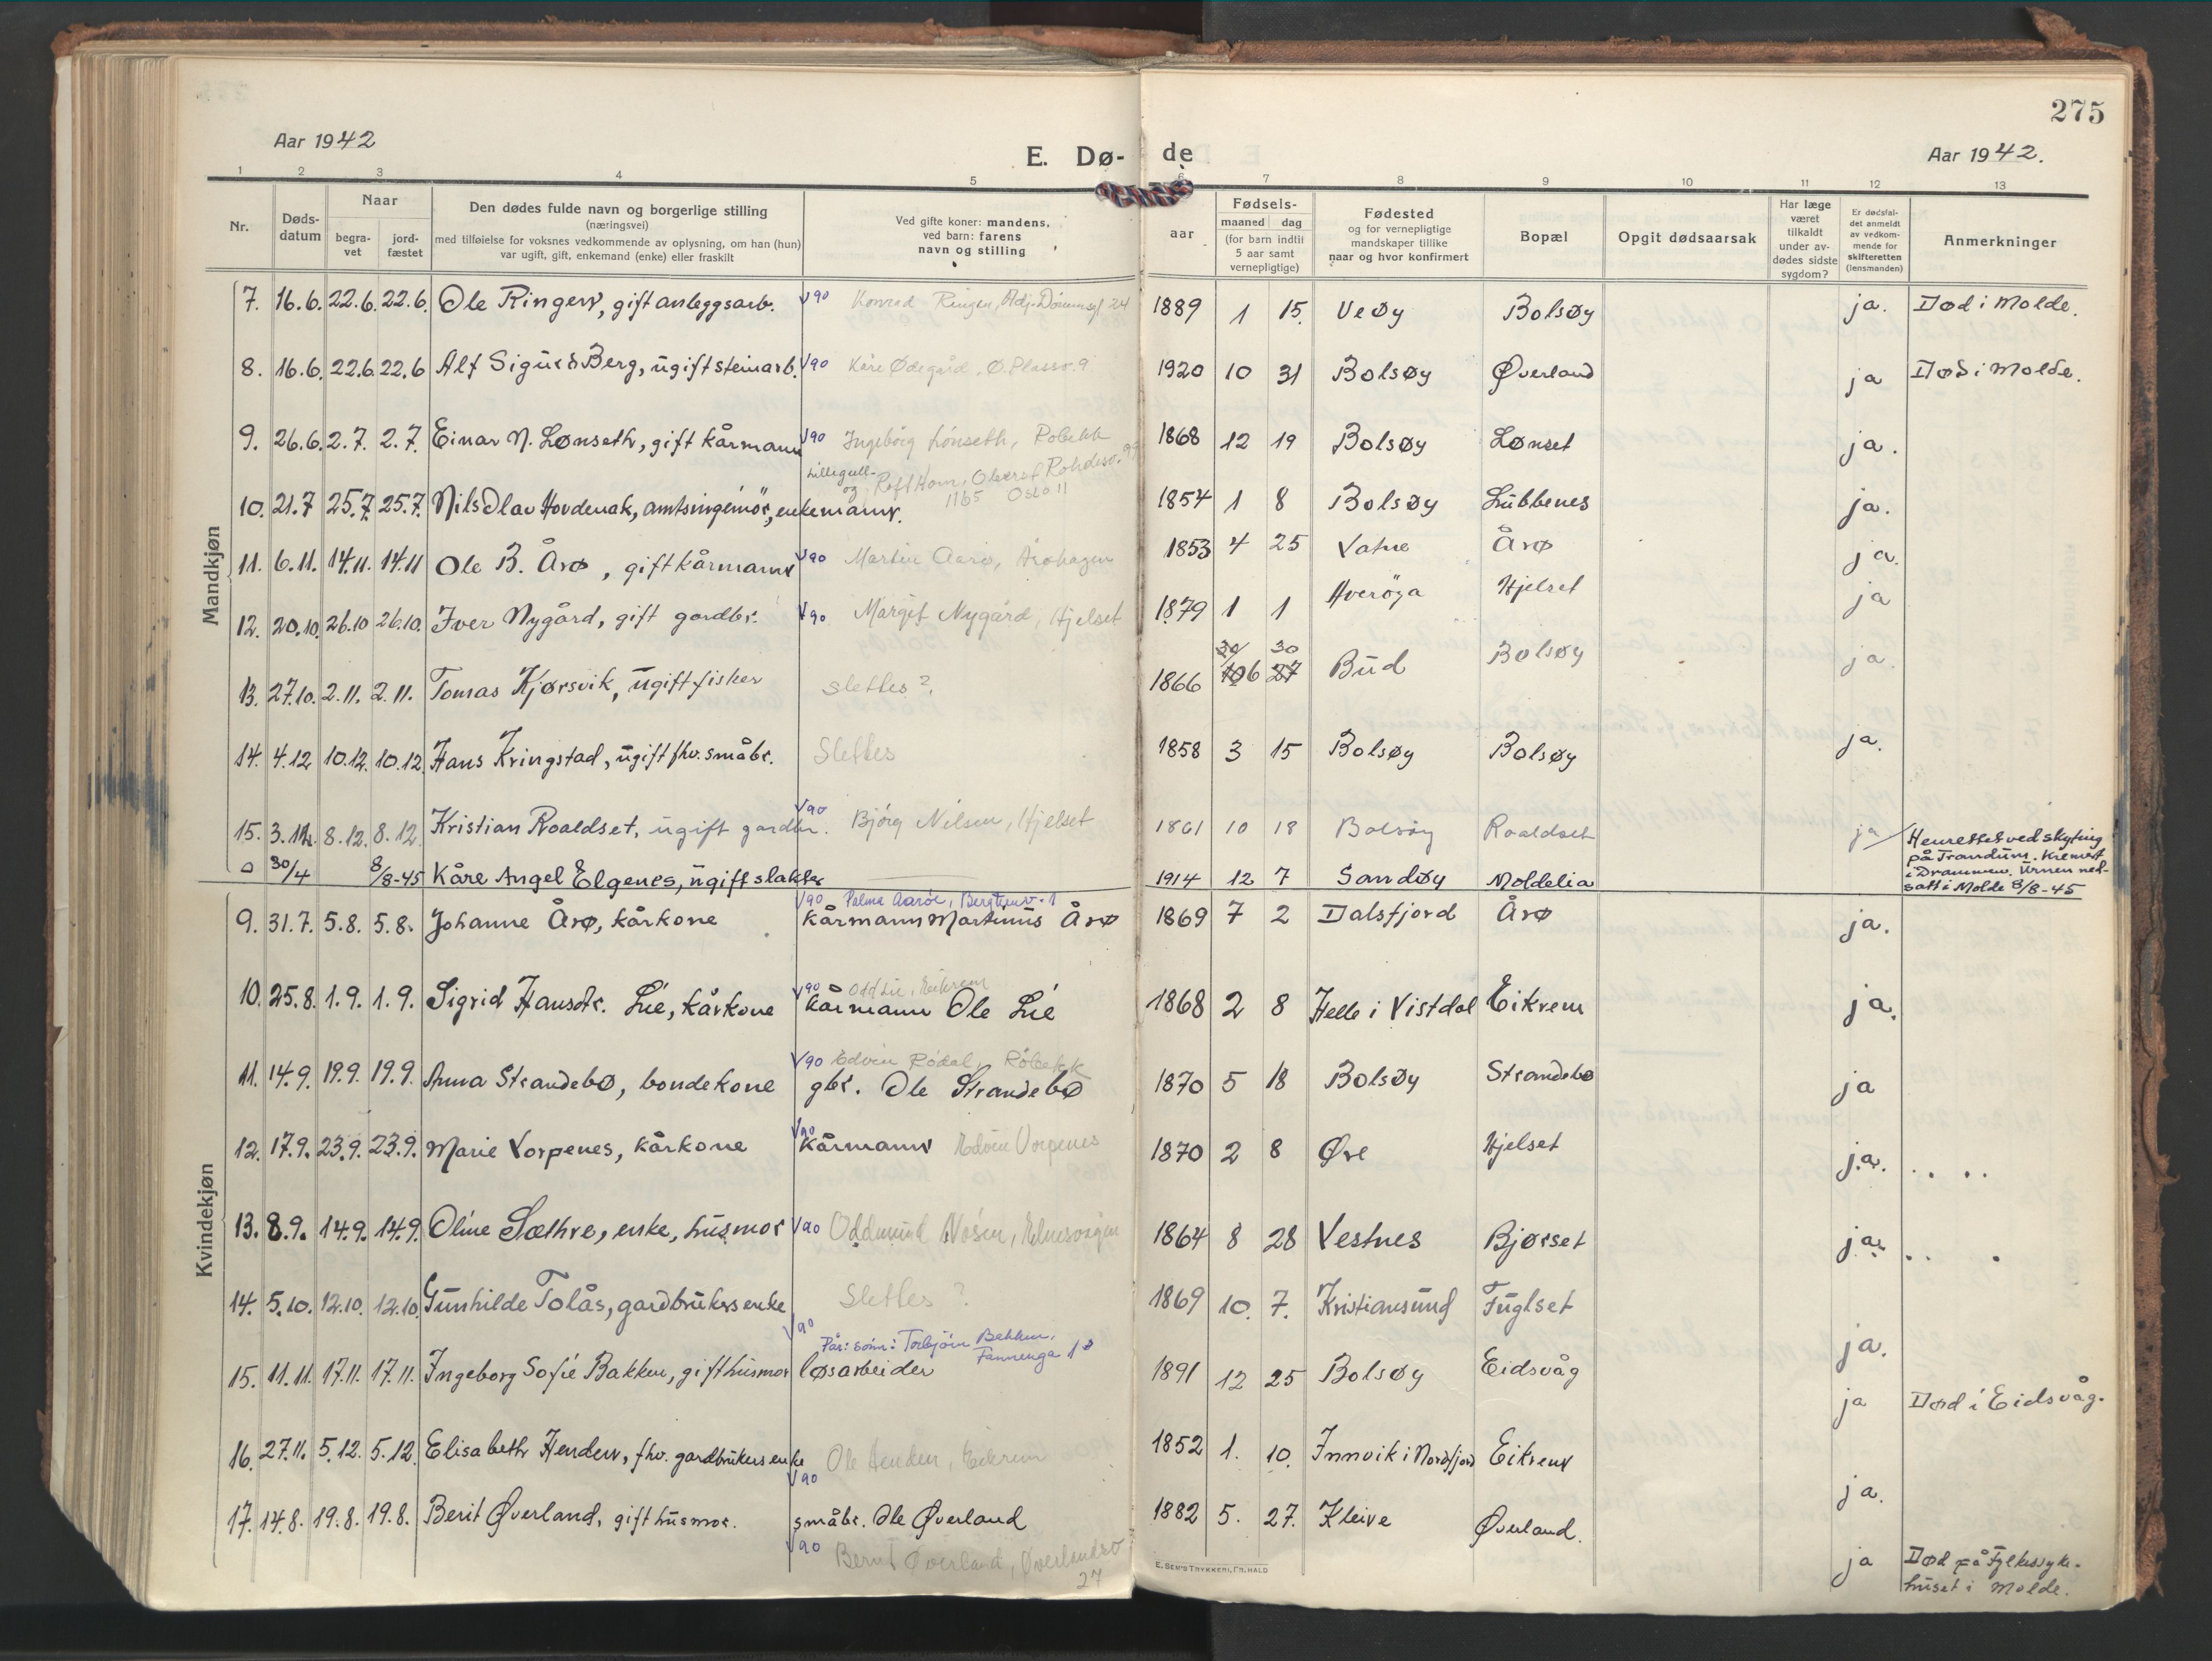 275
Aar 1942
E. Dø- de
Aar 1942.
1 2 3 4 5 6 7 8 9 10 11 12 13
Nr.
Døds-
datum
Naar
begra-
vet
jord-
fæstet
Den dødes fulde navn og borgerlige stilling
(næringsvei)
med tilføielse for voksnes vedkommende av oplysning, om han (hun)
var ugift, gift, enkemand (enke) eller fraskilt
Ved gifte koner: mandens,
ved barn: farens
navn og stilling
aar
Fødsels-
maaned dag
(for barn indtil
5 aar samt
vernepligtige)
Fødested
og for vernepligtige
mandskaper tillike
naar og hvor konfirmert
Bopæl
Opgit dødsaarsak
Har læge
været
tilkaldt
under av-
dødes sidste
sygdom?
Er dødsfal-
det anmeldt
av vedkom-
mende for
skifteretten
(lensmanden)
Anmerkninger
Mandkjøn
7. 16.6. 22.6. 22.6. Ole Ringen, gift anleggsarb. V90 Konrad Ringen, 24 1889 1 15. Veøy Bolsøy ja. Død i Molde.
8. 16.6. 22.6 22.6 Alf Sigurd Berg, ugift steinarb. V90 Kåre Ødegård, Ø. Plassv. 9 1920 10 31 Bolsøy Øverland ja Død i Molde.
9. 26.6. 2.7. 2.7. Einar N. Lønseth, gift kårmann V90 Ingebörg Lönseth, Röbekk 1868 12 19 Bolsøy Lønset ja.
Lillegull-
og Rolf Horn, Oberst Rohdesv. 99
1165 Oslo 11
10. 21.7 25.7. 25.7. Nils Olav Hovdenak, amtsingeniör, enkemann. 1854 1 8 Bolsøy Lubbenes ja.
11. 6.11. 14.11. 14.11 Ole B. Årø, gift kårmann V90 Martin Aarø, Årøhagen 1853 4 25 Vatne Årø ja.
12. 20.10. 26.10 26.10. Iver Nygård, gift gardbr. V90 Margit Nygård, Hjelset 1879 1 1 Averöya Hjelset ja
30/ 30
13. 27.10. 2.11. 2.11. Tomas Kjørsvik, ugift fisker Slettes? 1866 106 27 Bud Bolsøy ja.
14. 4.12 10.12. 10.12. Hans Kringstad, ugift fhv. småbr. Slettes 1858 3 15 Bolsøy Bolsøy ja.
15. 3.12. 8.12. 8.12. Kristian Roaldset, ugift gardbr. V90 Bjørg Nilsen, Hjelset 1861 10 18 Bolsøy Roaldset ja
0 30/4 8/8-45 Kåre Angel Elgenes, ugift slakter 1914 12 7 Sandøy Moldelia Henrettet ved skyting
på Trandum. Kremert
i Drammen. Urnen ned-
satt i Molde 8/8-45
Kvindekjøn
V90 Palma Aarøe, Bergtunv. 1
9. 31.7. 5.8. 5.8. Johanne Årø, kårkone kårmann Martinus Årø 1869 7 2 Dalsfjord Årø ja.
V90 Odd Lie, Eikrem
10. 25.8. 1.9. 1.9. Sigrid Hansdtr. Lie, kårkone kårmann Ole Lie 1868 2 8 Helle i Vistdal Eikrem ja.
V90 Edvin Rödal, Röbekk
11. 14.9. 19.9. 19.9. Anna Strandebø, bondekone gbr. Ole Strandebø 1870 5 18 Bolsøy Strandebø ja
V90
12. 17.9. 23.9. 23.9. Marie Vorpenes, kårkone kårmann Edvin Vorpenes 1870 2 8 Øre Hjelset ja.
13. 8.9. 14.9. 14.9. Oline Sæthre, enke, husmor V90 Oddmund Nøsen, 1864 8 28 Vestnes Bjørset ja.
14. 5.10. 12.10. 12.10. Gunhilde Tolås, gardbrukers enke Slettes? 1869 10. 7. Kristiansund Fuglset ja.
V90 Pår: sönn: Torbjörn Bekken,
Fannenga 18
15. 11.11. 17.11. 17.11. Ingeborg Sofie Bakken, gift husmor løsarbeider 1891 12 25 Bolsøy Eidsvåg ja Død i Eidsvåg.
16. 27.11. 5.12. 5.12. Elisabeth Henden, fhv. gardbrukers enke V90 Ole Henden, Eikrem 1852 1. 10. Innvik i Nordfjord Eikrem ja.
17. 14.8. 19.8. 19.8. Berit Øverland, gift husmor. småbr. Ole Øverland 1882 5. 27. Kleive Øverland. ja Død på Fylkessyke-
huset i Molde.
V90 Bernt Øverland, Øverlandsv
27
E. SEM'S TRYKKERI, FR.HALD